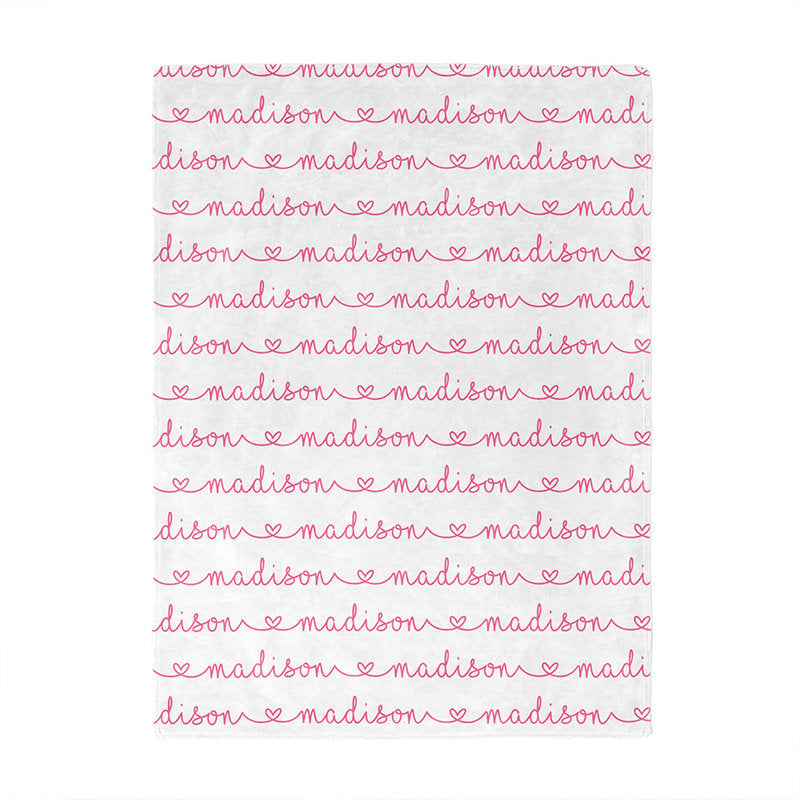 dison madison madison
madison madison madi
dison madison madison
madison madison madi
dison madison madison
madison madison madi
dison madison madison
madison madison madi
dison madison madison
madison madison madi
dison madison madison
madison madison madi
dison madison madison
madison madison madi
dison madison madison